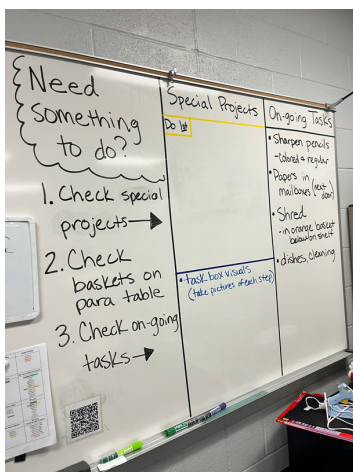 Need
something
to do?
1. Check special
projects
2. Check
baskets on
para table
3. Check on-going
tasks
Special Projects
Do 1st
• task box visuals
(take pictures of each step)
On-going Tasks
• Sharpen pencils
- colored & regular
• Papers in
mailboxes (next
door)
• Shred
- in orange basket
below on shelf
• dishes, cleaning